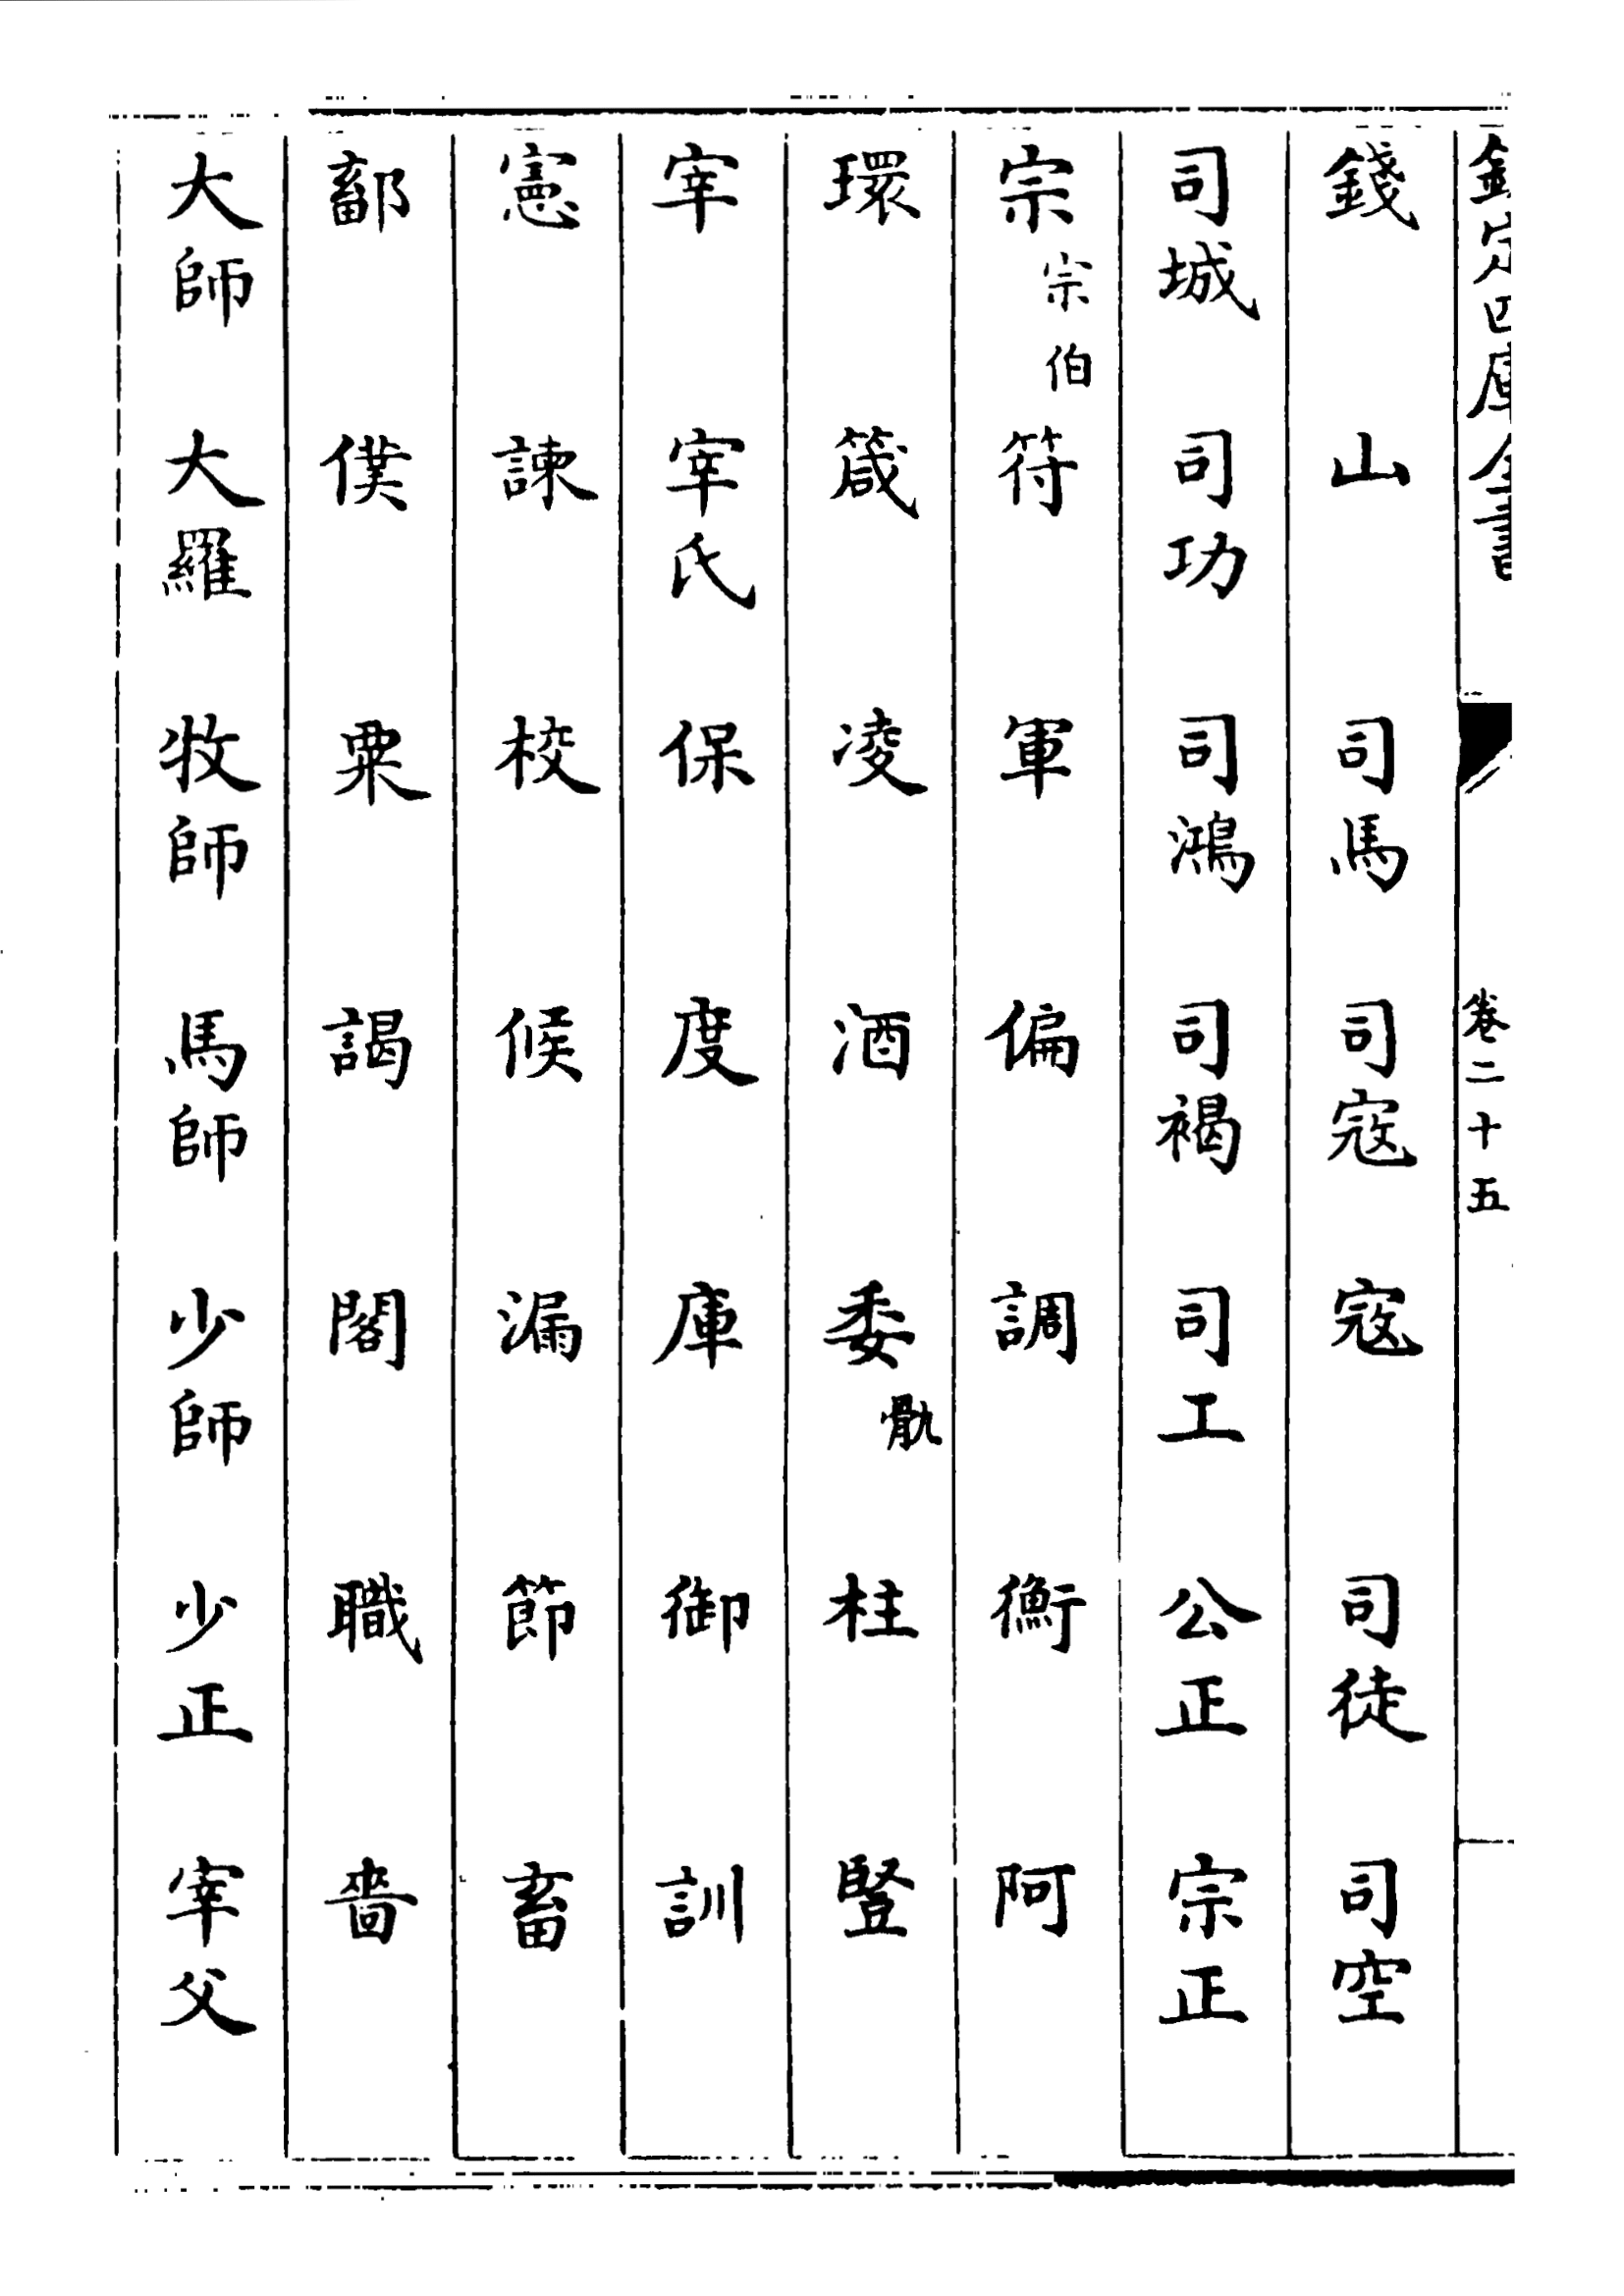 欽定四庫全書 卷二十五
錢 山 司馬 司寇 寇 司徒 司空
司城 司功 司鴻 司褐 司工 公正 宗正
宗宗伯 符 軍 偏 調 衡 阿
環 箴 凌 酒 委骫 柱 豎
宰 宰氏 保 度 庫 御 訓
憲 諫 校 候 漏 節 畜
鄐 僕 粟 謁 閣 職 嗇
大師 大羅 牧師 馬師 少師 少正 宰父